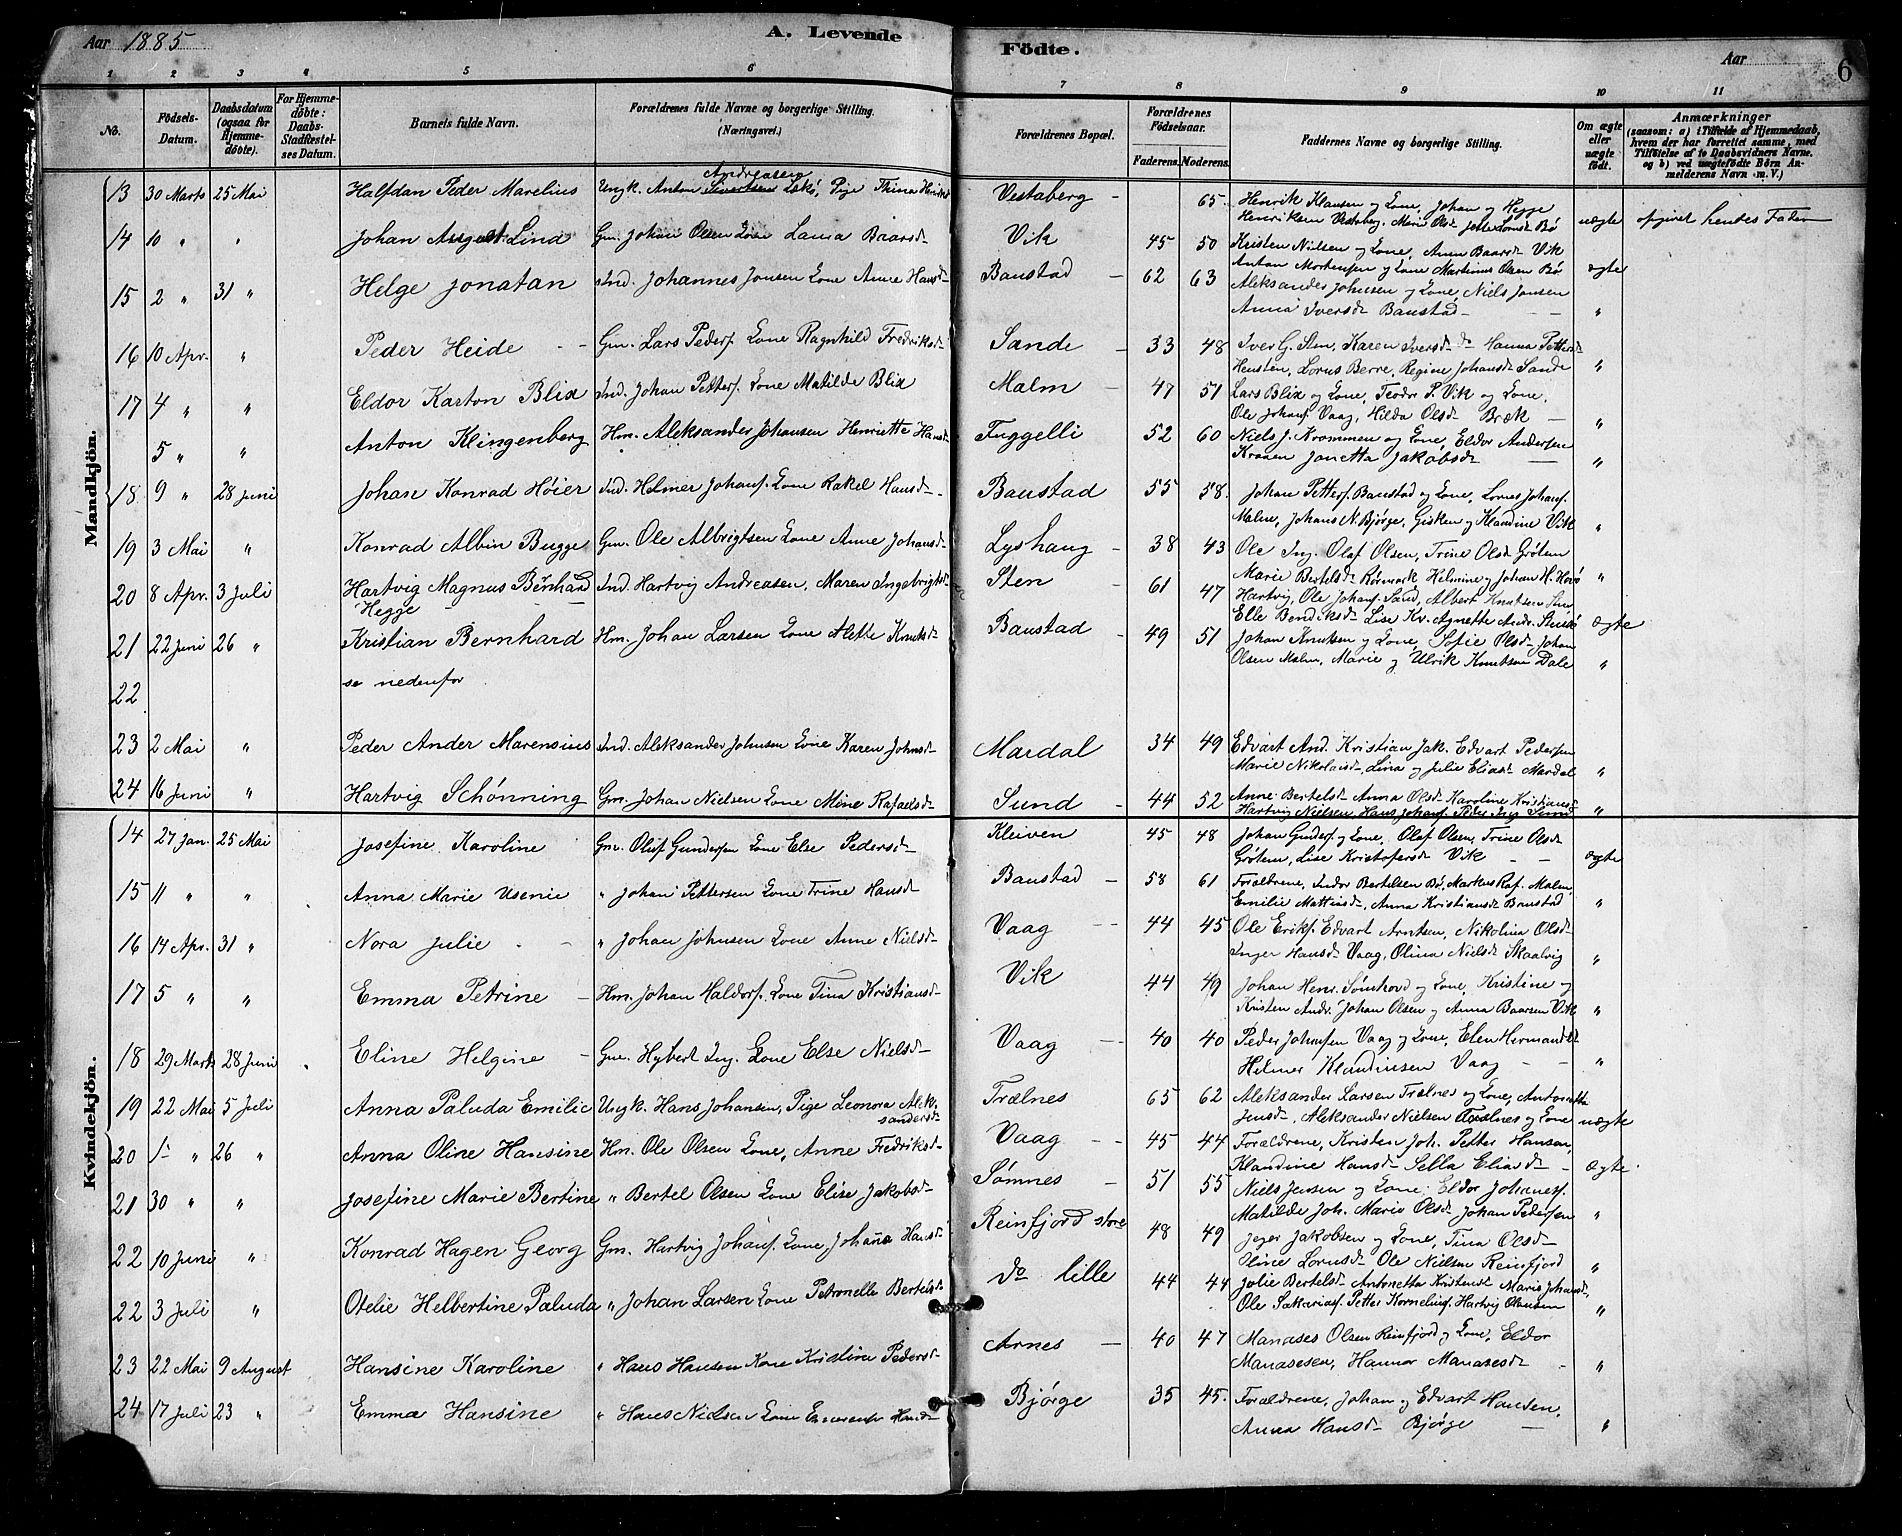 Aar 1885
A. Levende
Födte.
Aar
6
1 2 3 4 5 6 7 8 9 10 11
No.
Födsels-Datum.
Daabsdatum (ogsaa for Hjemme-döbte).
For Hjemme-döbte: Daabs-Stadfæstel-ses Datum.
Barnets fulde Navn.
Forældrenes fulde Navne og borgerlige Stilling. (Næringsvei.)
Forældrenes Bopæl.
Forældrenes Födselsaar.
Faderens. Moderens.
Faddernes Navne og borgerlige Stilling.
Om ægte eller uægte födt.
Anmærkninger
(saasom: a) i Tilfælde af Hjemmedaab,
hvem der har forrettet samme, med
Tilföielse af to Daabsvidners Navne,
og b) ved uægtefödte Börn An-
melderens Navn m. V.)
Mandkjön.
Andreasen
13 30 Marts 25 Mai Halfdan Peder Marelius Ungk. Anton Sivertsen Lekö, Pige Thina Henriksd Vestaberg - 65 Henrik Klausen og Kone, Johan og Hegge
Henriksen Vestaberg, Marie Olsd uægte opgivet hendes Fader
14 10 " " Johan August Lind Gm. Johan Olsen Kone Laura Baarsd- Vik 45 50 Kristen Nielsen og Kone, Anna Baarsd Vik
Anton Mortensen og Kone Martinus Olsen Bö ægte
15 2 " 31 " Helge Jonatan Ind. Johannes Jonsen Kone Anne Hansd- Baustad - 62 63 Aleksander Johnsen og Kone, Niels Jonsen
Anna Iversd- Baustad - "
16 10 Apr. " Peder Heide - - Gm. Lars Peders. Kone Ragnhild Fredriksd- Sande - 33 48 Iver G. Sten, Karen Iversd- do Hanna Pettersd
Lorns Berre, Regine Johansd- Sande "
17 4 " " Eldor Karton Blix Ind. Johan Petters. Kone Matilde Blix Malm - 47 51 Lars Blix og Kone, Teodor P. Vik og Kone,
Ole Johans. Vaag, Hilda Olsd- Bræk - "
5 " " Anton Klingenberg Hm. Aleksander Johansen Henriette Hansd- Fuggelli 52 60 Niels J. Krommen og Kone, Eldor Andersen
Jonetta Jakobsd - "
18 9 " 28 Juni Johan Konrad Höier Ind. Helmer Johans. Kone Rakel Hansd- Baustad 55 58. Johan Petters. Baustad og Kone, Lornes Johans.
Malm, Johans N. Bjørge, Gisken og Klaudine Vik "
19 3 Mai " Konrad Albin Bugge Gm. Ole Albrigtsen Kone Anne Johansd- Lyshaug - 38 43 Ole Ing. Olaf Olsen, Trine Olsd- Gröten
Marie Bertelsd- Rörmark, Helmine og Johan H. "
20 8 Apr. 3 Juli Hartvig Magnus Bernhard Ind. Hartvig Andreasen, Maren Ingebrigtsd- Sten - 61 47 Hartvig, Ole Johans. Sand, Albert Knutsen
Hegge
Elle Bendiksd- Lise Kr. Agnette ægte
21 22 Juni 26 " Kristian Bernhard Hm. Johan Larsen Kone Alette Knutsd- Baustad - 49 51 Johan Knutsen og Kone, Sofie Olsd- Johan
Olsen Malm, Marie og Ulrik Knutsen Dale "
22 se nedenfor
23 2 Mai " Peder Ander Marensius Ind. Aleksander Johnsen Kone Karen Johnsd- Mardal 34 49 Edvart And. Kristian Jak. Edvart Pedersen
Marie Nikolaisd- Lina og Julie Eliasd- Mardal "
24 16 Juni " Hartvig Schönning Gm. Johan Nielsen Kone Mine Rafaelsd- Sund - 44 52 Anne Bertelsd- Anna Olsd- Karoline Kristiansd-
Hartvig Nielsen, Hans Johans. Peder Ing. Sund "
Kvindekjön.
14 27 Jan. 25 Mai Josefine Karoline Gm. Oluf Gundersen Kone Else Pedersd- Kleiven 45 48 Johan Gunders. og Kone, Olaf Olsen, Trine Olsd-
Gröten, Lise Kristofersd- Vik - - ægte
15 11 " " Anna Marie Usenie " Johan Pettersen Kone Trine Hansd- Baustad - 58 61 Forældrene, Indor Bertelsen Bö, Markus Raf. Malm,
Emilie Mattisd- Anna Kristiansd- Baustad "
16 14 Apr. 31 " Nora Julie - - " Johan Johnsen Kone Anne Nielsd- Vaag - - 44 45 Ole Eriks. Edvart Arntsen, Nikolina Olsd-
Inger Hansd- Vaag, Olina Nielsd- Skaalvig "
17 5 " " Emma Petrine - Hm. Johan Haldors. Kone Tina Kristiansd- Vik 44 49 Johan Henr. Sömhovd og Kone, Kristine og
Kristen Andr. Johan Olsen og Anna Baarsen Vik "
18 29 Marts 28 Juni Eline Helgine - Gm. Hybert Ing. Kone Else Nielsd- Vaag - - 40 40 Peder Johansen Vaag og Kone, Elen Hermandsd-
Helmer Klaudiusen Vaag - - "
19 22 Mai 5 Juli Anna Paluda Emilie Ungk. Hans Johansen, Pige Leonora Alek-
sandersd- Trælnes 65 62 Aleksander Larsen Trælnes og Kone, Antonetta
Jensd-, Aleksander Nielsen Trælnes og Kone uægte
20 1- " 26 " Anna Oline Hansine Hm. Ole Olsen Kone, Anne Fredriksd- Vaag - - 45 44 Forældrene, Kristen Joh. Petter Hansen,
Klaudine Hansd- Sella Eliasd- - ægte
21 30 " " Josefine Marie Bertine " Bertel Olsen Kone Elise Jakobsd- Sömnes - 51 55 Niels Jensen og Kone, Eldor Johanes.
Matilde Joh. Marie Olsd- Johan Pedersen "
22 10 Juni " Konrad Hagen Georg Gm. Hartvig Johans. Kone, Johana Hansd- Reinfjord store 48 49 Jeger Jakobsen og Kone, Tina Olsd-
Oline Lornsd- Ole Nielsen Reinfjord "
22 3 Juli " Otelie Helbertine Paluda " Johan Larsen Kone Petronelle Bertelsd- do lille 44 44 Jolie Bertelsd- Antonetta Kristensd- Marie Johansd-,
Ole Sakarias. Petter Kornelius. Hartvig Olausen "
23 22 Mai 9 August Hansine Karoline " Hans Hansen Kone Kristina Pedersd- Arnes - 40 47 Manases Olsen Reinfjord og Kone, Eldor
Manasesen, Hanna Manasesd- - "
24 17 Juli 23 " Emma Hansine " Hans Nielsen Kone Hansd- Bjørge 35 45. Forældrene, Johan og Edvart Hansen,
Anna Hansd- Bjørge - "